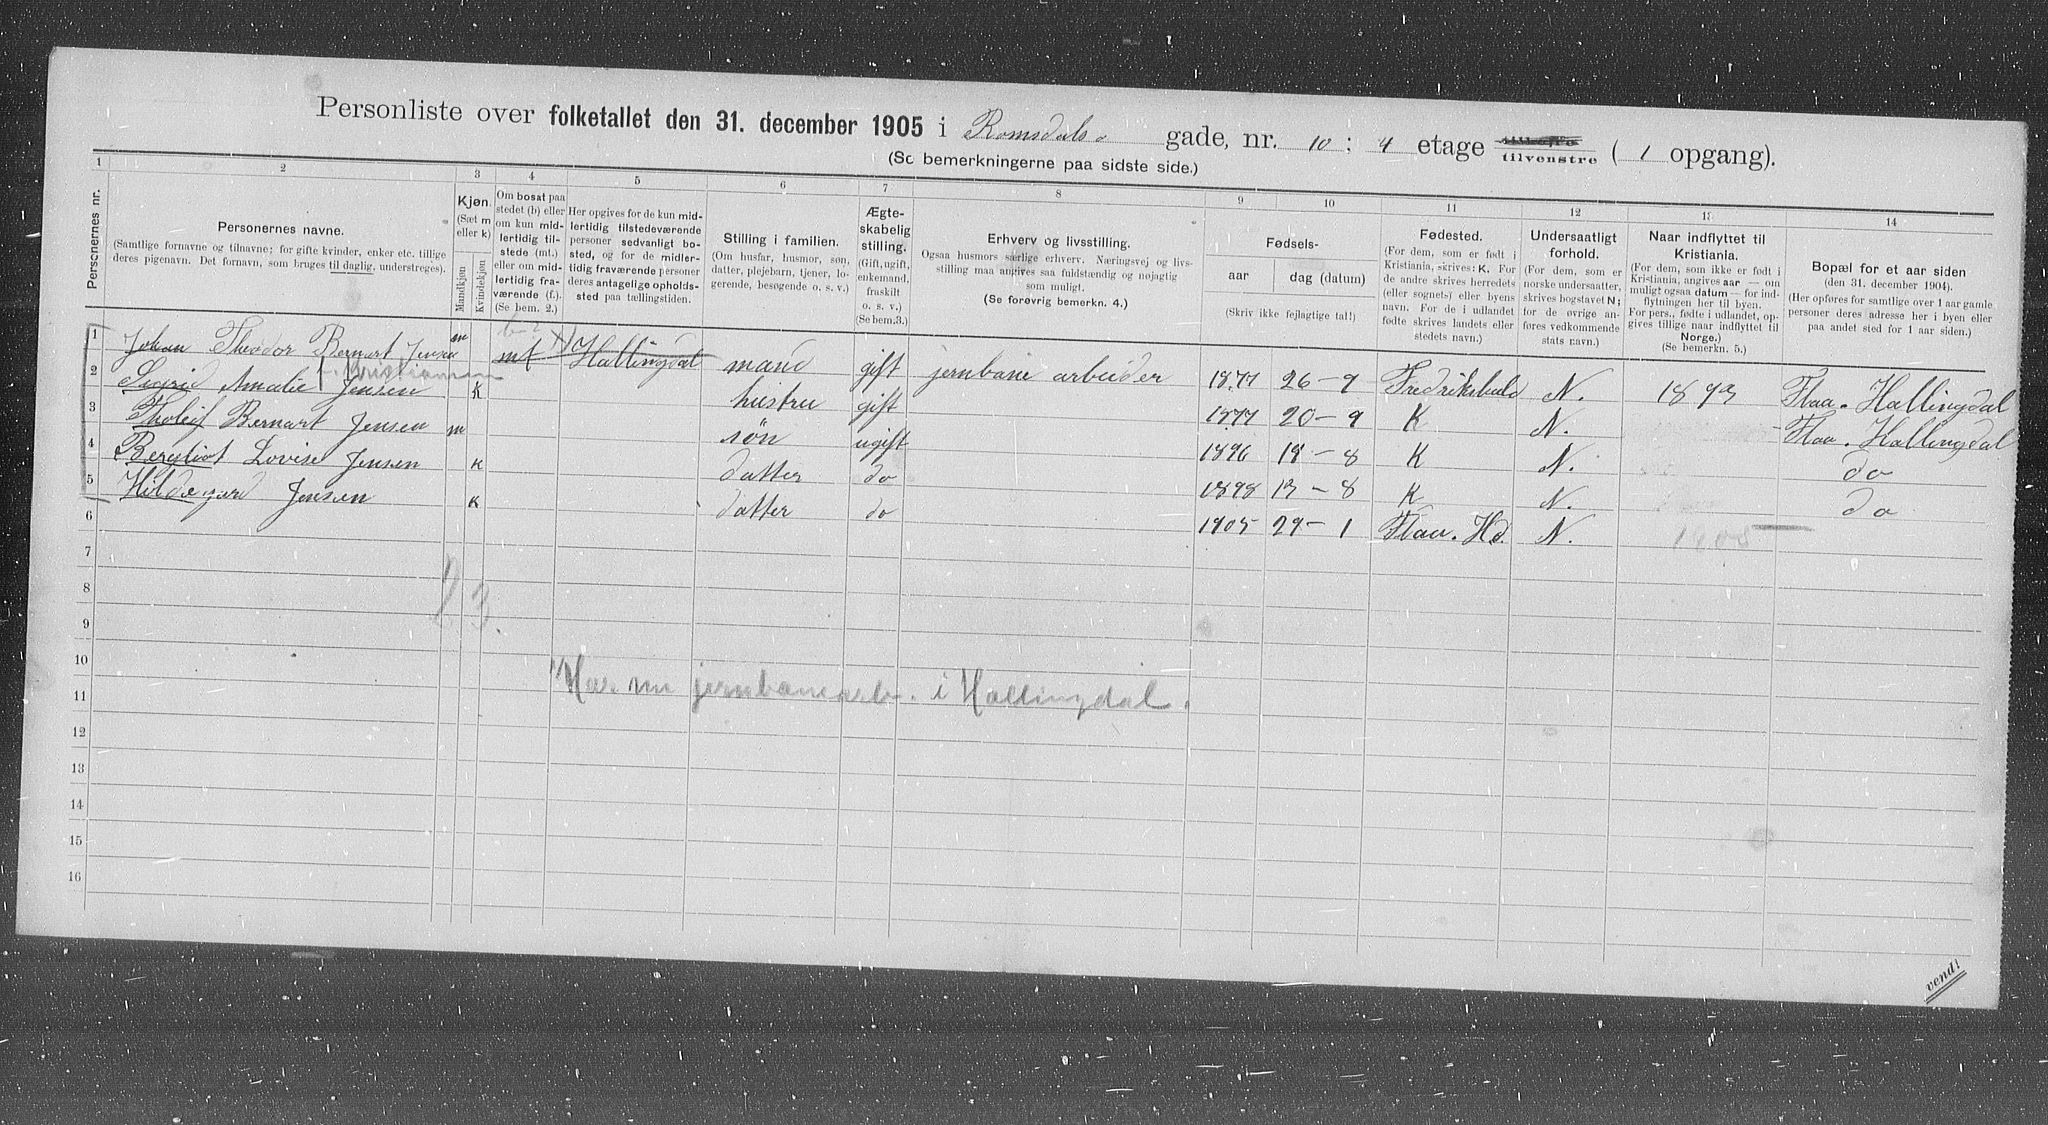 Personliste over folketallet den 31. december 1905 i Romsdals gade, nr. 10 : 4 etage tilvenstre ( 1 opgang).
(Se bemerkningerne paa sidste side.)
1 2 3 4 5 6 7 8 9 10 11 12 13 14
Personernes nr.
Personernes navne.
(Samtlige fornavne og tilnavne; for gifte kvinder, enker etc. tillige
deres pigenavn. Det fornavn, som bruges til daglig, understreges).
Kjøn.
(Sæt m
eller k)
Mandkjøn
Kvindekjøn
Om bosat paa
stedet (b) eller
om kun mid-
lertidig til-
stede (mt.)
eller om mid-
lertidig fra-
værende (f.).
(Se bem. 2.)
Her opgives for de kun mid-
lertidig tilstedeværende
personer sedvanligt bo-
sted, og for de midler-
tidig fraværende personer
deres antagelige opholds-
sted paa tællingstiden.
Stilling i familien.
(Om husfar, husmor, søn,
datter, plejebarn, tjener, lo-
gerende, besøgende o. s. v.)
Ægte-
skabelig
stilling.
(Gift, ugift,
enkemand,
fraskilt
o. s. v.)
(Se bem.3.)
Erhverv og livsstilling.
Ogsaa husmors særlige erhverv. Næringsvej og livs-
stilling maa angives saa fuldstændig og nøjagtig
som muligt.
(Se forøvrig bemerkn. 4.)
Fødsels-
aar
dag (datum)
(Skriv ikke fejlagtige tal!)
Fødested.
(For dem, som er født i
Kristiania, skrives: K. For
de andre skrives herredets
(eller sognets) eller byens
navn. For de i udlandet
fødte skrives landets eller
stedets navn.)
Undersaatligt
forhold.
(For dem, som er
norske undersaatter,
skrives bogstavet N;
for de øvrige an-
føres vedkommende
stats navn.)
Naar indflyttet til
Kristiania.
(For dem, som ikke er født i
Kristiania, angives aar — om
muligt ogsaa datum — for ind-
flytningen her til byen.
For pers., fødte i udlandet, op-
gives tillige naar indflyttet til
Norge.)
(Se bemerkn. 5.)
Bopæl for et aar siden
(den 31. december 1904).
(Her opføres for samtlige over 1 aar gamle
personer deres adresse her i byen eller
paa andet sted for 1 aar siden.)
1 Johan Theodor Bernart Jensen m mt x) Hallingdal mand gift jernbane arbeider 1877 26-9 Fredrikshald N. 1893 Flaa. Hallingdal
2 Sigrid Amalie Jensen f. Kristiansen k hustru gift 1877 20-9 K N. Flaa. Hallingdal
3 Tholeif Bernart Jensen m søn ugift 1896 18-8 K N. do
4 Bergliot Lovise Jensen k datter do 1898 13-8 K N. do
5 Hildegard Jensen k datter do 1905 29-1 Flaa. Hd. N. 1905 —
6
7
8
9
10
11 Har nu jernbanearb. i Hallingdal.
12
13
14
15
16
vend!